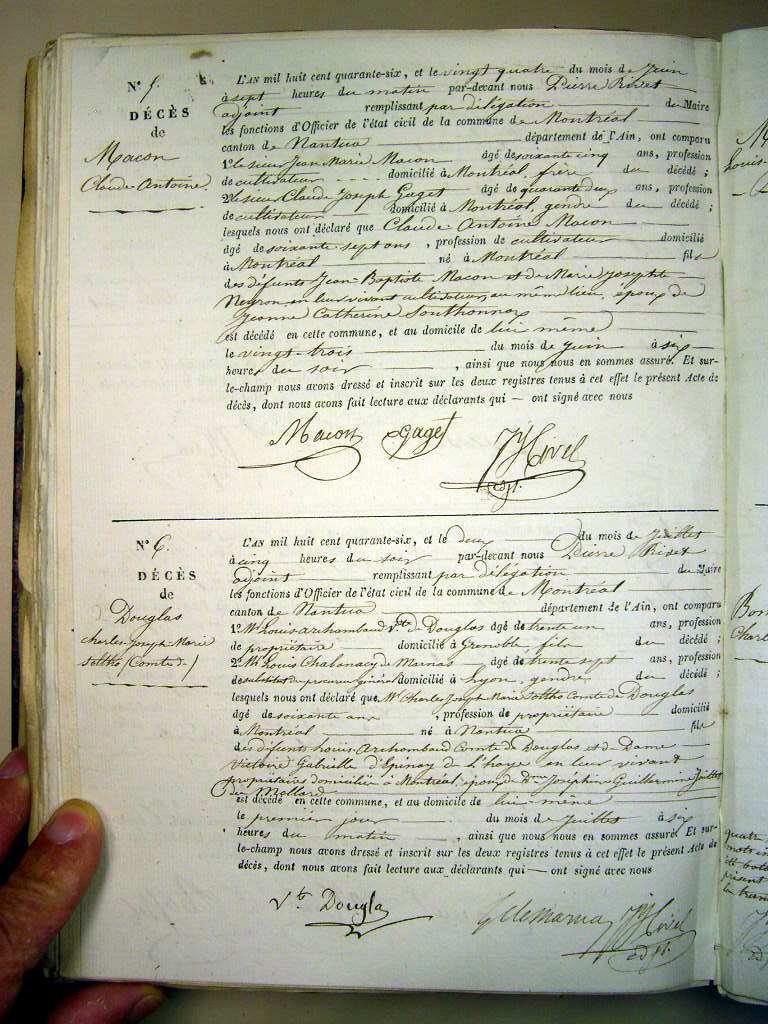 N° 5.
DÉCÈS
de
Macon
Claude Antoine.
L'AN mil huit cent quarante-six, et le vingt quatre du mois de Juin
à sept heures du matin par-devant nous Pierre Rivet
adjoint remplissant par délégation du Maire
les fonctions d'Officier de l'état civil de la commune de Montréal
canton de Nantua département de l'Ain, ont comparu
1° le sieur Jean Marie Macon âgé de soixante cinq ans, profession
de cultivateur domicilié à Montréal, frère du décédé ;
2° le sieur Claude Joseph Gaget âgé de quarante deux ans, profession
de cultivateur domicilié à Montréal, gendre du décédé ;
lesquels nous ont déclaré que Claude Antoine Macon
âgé de soixante sept ans, profession de cultivateur domicilié
à Montréal né à Montréal fils
des défunts Jean-Baptiste Macon et de Marie Josephte
Neyron en leur vivant cultivateurs au même lieu, époux de
Jeanne Catherine Southonnox
est décédé en cette commune, et au domicile de lui même
le vingt-trois du mois de Juin à six
heures du soir, ainsi que nous nous en sommes assuré. Et sur-
le-champ nous avons dressé et inscrit sur les deux registres tenus à cet effet le présent Acte de
décès, dont nous avons fait lecture aux déclarants qui — ont signé avec nous
Macon Gaget Rivet
adjt.
N° 6.
DÉCÈS
de
Douglas
Charles-Joseph-Marie
Soltho (Comte de)
L'AN mil huit cent quarante-six, et le deux du mois de Juillet
à cinq heures du soir par-devant nous Pierre Rivet
adjoint remplissant par délégation du Maire
les fonctions d'Officier de l'état civil de la commune de Montréal
canton de Nantua département de l'Ain, ont comparu
1° Mr Louis archambaud Vte de Douglas âgé de trente un ans, profession
de propriétaire domicilié à Grenoble, fils du décédé ;
2° Mr Louis Chabanacy de Marnas âgé de trente sept ans, profession
de substitut du procureur général domicilié à Lyon, gendre du décédé ;
lesquels nous ont déclaré que Mr Charles Joseph Marie Soltho Comte de Douglas
âgé de soixante ans, profession de propriétaire domicilié
à Montréal né à Nantua fils
des défunts Louis Archambaud Comte de Douglas et de Dame
Victoire Gabrielle d'Epinay de L'haye en leur vivant
propriétaires domiciliés à Montréal, époux de Dme Joséphine Guillermine Juillet
du Mollard
est décédé en cette commune, et au domicile de lui-même
le premier jour du mois de Juillet à six
heures du matin, ainsi que nous nous en sommes assuré. Et sur-
le-champ nous avons dressé et inscrit sur les deux registres tenus à cet effet le présent Acte de
décès, dont nous avons fait lecture aux déclarants qui — ont signé avec nous
Vte Dougla Rivet
adjt.